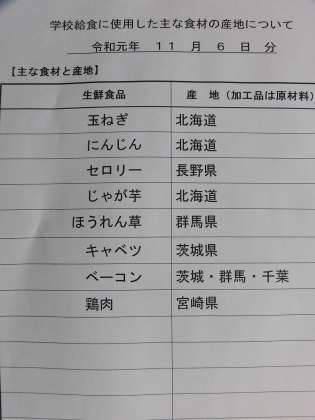 学校給食に使用した主な食材の産地について
令和元年 11 月 6 日 分
【主な食材と産地】
生鮮食品 産 地（加工品は原材料）
玉ねぎ 北海道
にんじん 北海道
セロリー 長野県
じゃが芋 北海道
ほうれん草 群馬県
キャベツ 茨城県
ベーコン 茨城・群馬・千葉
鶏肉 宮崎県